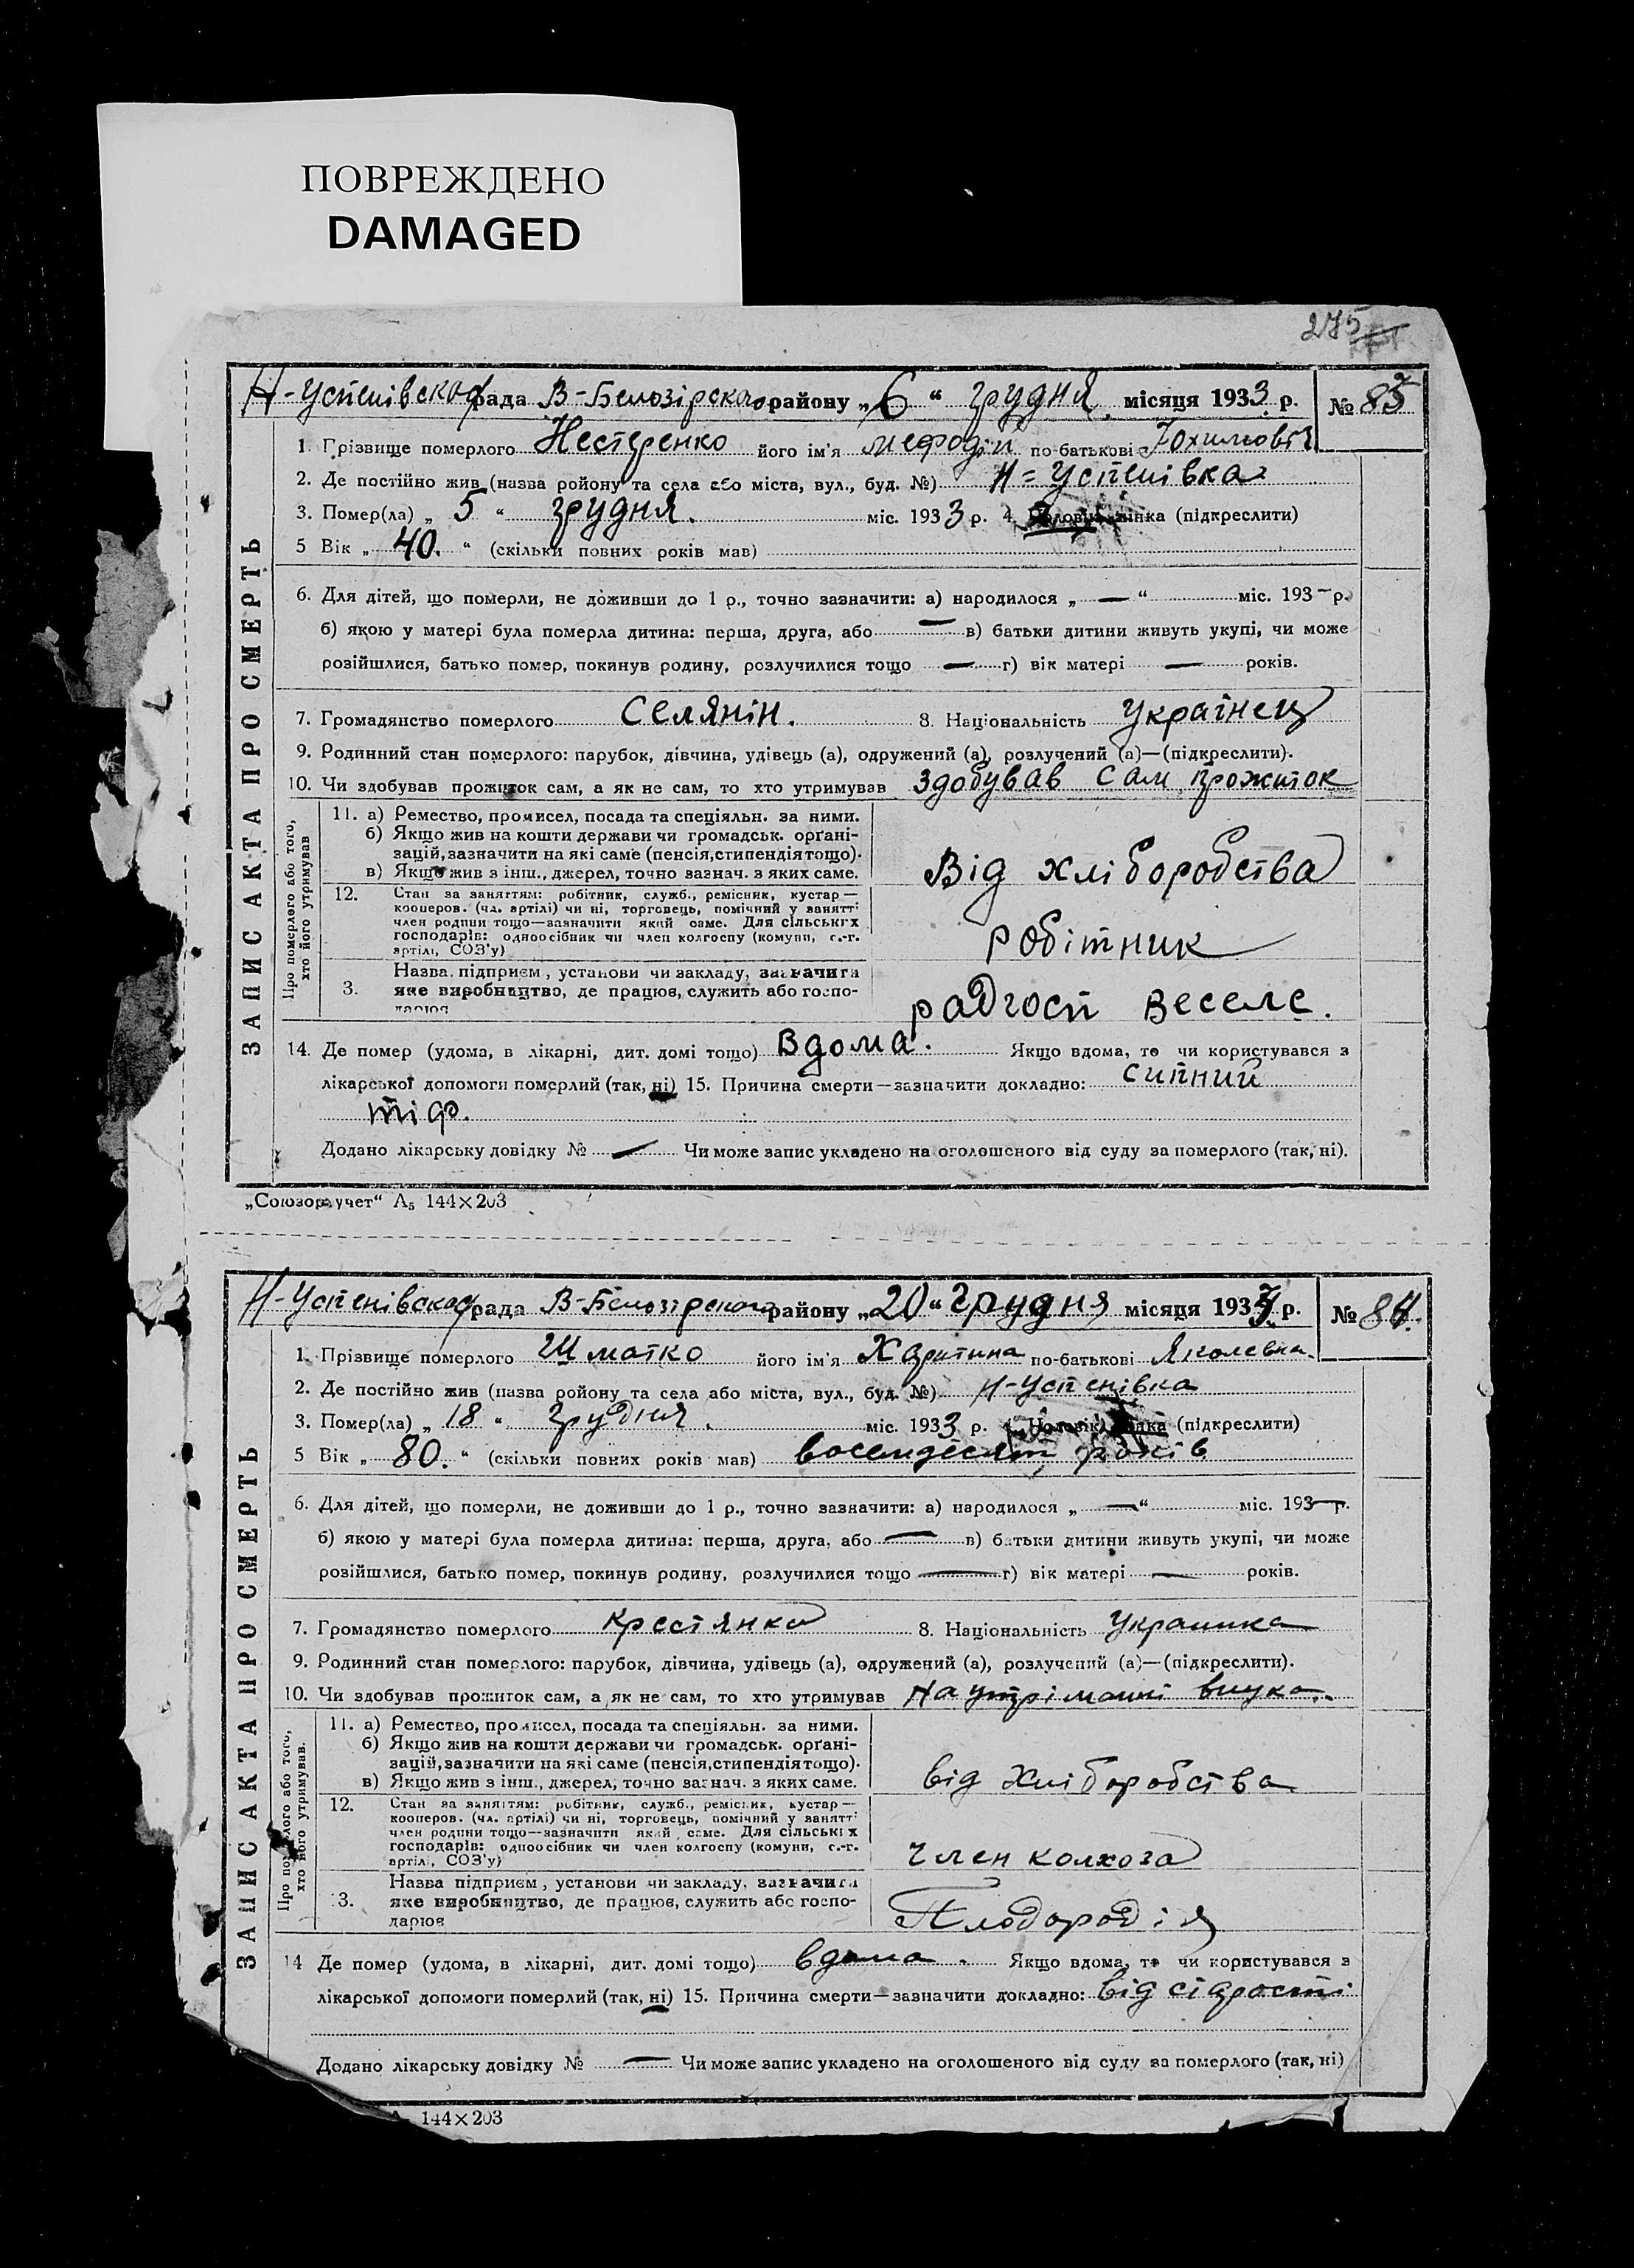 ПОВРЕЖДЕНО
DAMAGED
275
Н-Успенівской рада В-Белозірского району „6“ грудня місяця 1933 р. № 83
1. Прізвище померлого Нестеренко його ім'я Мефодій по-батькові Юхимовіч
2. Де постійно жив (назва ройону та села або міста, вул., буд. №) Н=Успенівка
3. Помер(ла) „ 5 “ грудня. міс. 1933 р. 4. Чоловік, жінка (підкреслити)
5 Вік „ 40. “ (скільки повних років мав)
6. Для дітей, що померли, не доживши до 1 р., точно зазначити: а) народилося „ — “ міс. 193 — р.
б) якою у матері була померла дитина: перша, друга, або — в) батьки дитини живуть укупі, чи може
розійшлися, батько помер, покинув родину, розлучилися тощо — г) вік матері — років.
7. Громадянство померлого Селянін. 8. Національність Українец
9. Родинний стан померлого: парубок, дівчина, удівець (а), одружений (а), розлучений (а)—(підкреслити).
10. Чи здобував прожиток сам, а як не сам, то хто утримував здобував сам прожиток
ЗАПИС АКТА ПРО СМЕРТЬ
Про померлого або того,
хто його утримував
11. а) Ремество, промисел, посада та спеціяльн. за ними.
б) Якщо жив на кошти держави чи громадськ. орґані-
зацій, зазначити на які саме (пенсія, стипендія тощо).
в) Якщо жив з інш., джерел, точно зазнач. з яких саме.
Від хліборобства
12. Стан за заняттям: робітник, служб., ремісник, кустар—
кооперов. (чл. артілі) чи ні, торговець, помічний у занятті
член родини тощо—зазначити який саме. Для сільських
господарів: одноосібник чи член колгоспу (комуни, с.-г.
артілі, СОЗ'у)
робітник
Назва підприєм, установи чи закладу, зазначити
3. яке виробництво, де працює, служить або госпо-
дарює
радгосп Веселе.
14. Де помер (удома, в лікарні, дит. домі тощо) Вдома. Якщо вдома, то чи користувався з
лікарської допомоги померлий (так, ні) 15. Причина смерти—зазначити докладно: сипний
тіф.
Додано лікарську довідку № — Чи може запис укладено на оголошеного від суду за померлого (так, ні).
„Союзоргучет“ А₅ 144×203
Н-Успенівской рада В-Белозірского району „20“ Грудня місяця 1933 р. № 84.
1. Прізвище померлого Шматко його ім'я Харитина по-батькові Яковлевна.
2. Де постійно жив (назва ройону та села або міста, вул., буд. №) Н-Успенівка
3. Помер(ла) „ 18 “ грудня. міс. 1933 р. 4. Чоловік, жінка (підкреслити)
5 Вік „ 80. “ (скільки повних років мав) восемдесят років
6. Для дітей, що померли, не доживши до 1 р., точно зазначити: а) народилося „ — “ міс. 193 — р.
б) якою у матері була померла дитина: перша, друга, або — в) батьки дитини живуть укупі, чи може
розійшлися, батько помер, покинув родину, розлучилися тощо — г) вік матері — років.
7. Громадянство померлого крестянка 8. Національність Украинка
9. Родинний стан померлого: парубок, дівчина, удівець (а), одружений (а), розлучений (а)—(підкреслити).
10. Чи здобував прожиток сам, а як не сам, то хто утримував На утріманні внука.
ЗАПИС АКТА ПРО СМЕРТЬ
Про померлого або того,
хто його утримував.
11. а) Ремество, промисел, посада та спеціяльн. за ними.
б) Якщо жив на кошти держави чи громадськ. орґані-
зацій, зазначити на які саме (пенсія, стипендія тощо).
в) Якщо жив з інш., джерел, точно зазнач. з яких саме.
від хліборобства
12. Стан за заняттям: робітник, служб., ремісник, кустар—
кооперов. (чл. артілі) чи ні, торговець, помічний у занятті
член родини тощо—зазначити який саме. Для сільських
господарів: одноосібник чи член колгоспу (комуни, с.-г.
артілі, СОЗ'у)
член колхоза
Назва підприєм, установи чи закладу, зазначити
3. яке виробництво, де працює, служить або госпо-
дарює
Плодородія
14 Де помер (удома, в лікарні, дит. домі тощо) вдома. Якщо вдома, то чи користувався з
лікарської допомоги померлий (так, ні) 15. Причина смерти—зазначити докладно: від старості
Додано лікарську довідку № — Чи може запис укладено на оголошеного від суду за померлого (так, ні)
144×203